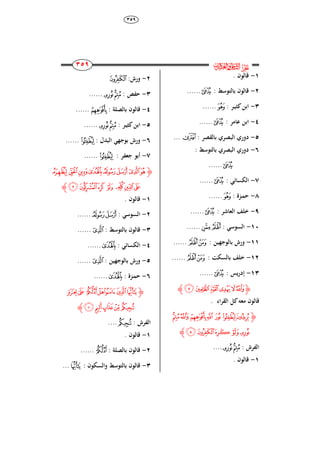 ٣٥٩
١- قالون .
٢- قالون بالتوسط : يُدْعَىٰٓ ......
٣- ابن كثير : وَهْوَ ......
٤- ابن عامر : يُدْعَىٰٓ ......
٥- دوري البصري بالقصر : ٱفْتَرَىٰ ...
٦- دوري البصري بالتوسط :
يُدْعَىٰٓ ......
٧- الكسائي : يُدْعَىٰٓ ......
٨- حمزة : وَهُوَ ......
٩- خلف العاشر : يُدْعَىٰٓ ......
١٠- السوسي : أَظْلَم مِّمَّنِ ......
١١- ورش بالوجهين : وَمَنْ أَظْلَمُ ......
١٢- خلف بالسكت : وَمَنْ أَظْلَمُ ......
١٣- إدريس : يُدْعَىٰٓ ......
﴿ وَٱللَّهُ لَا يَهْدِى ٱلْقَوْمَ ٱلظَّٰلِمِينَ ﴿٧﴾ ﴾
قالون معه كل القراء .
﴿ يُرِيدُونَ لِيُطْفِـُٔوا۟ نُورَ ٱللَّهِ بِأَفْوَٰهِهِمْ وَٱللَّهُ مُتِمٌّ
نُورَهُۥ وَلَوْ كَرِهَ ٱلْكَٰفِرُونَ ﴿٨﴾ ﴾
الفرش : مُتِمُّ نُورِهِۦ ....
١- قالون .
٢- ورش: ٱلْكَٰفِرُونَ
٣- حفص : مُتِمُّ نُورِهِۦ ......
٤- قالون بالصلة : بِأَفْوَٰهِهِمُۥ ......
٥- ابن كثير : مُتِمُّ نُورِهِۦ ......
٦- ورش بوجهي البدل : لِيُطْفِـُٔوا۟ ......
٧- أبو جعفر : لِيُطْفُوا۟ ......
﴿ هُوَ ٱلَّذِىٓ أَرْسَلَ رَسُولَهُۥ بِٱلْهُدَىٰ وَدِينِ ٱلْحَقِّ لِيُظْهِرَهُۥ
عَلَى ٱلدِّينِ كُلِّهِۦ وَلَوْ كَرِهَ ٱلْمُشْرِكُونَ ﴿٩﴾ ﴾
١- قالون .
٢- السوسي : أَرْسَل رَّسُولَهُۥ ......
٣- قالون بالتوسط : ٱلَّذِىٓ ......
٤- الكسائي : بِٱلْهُدَىٰ ......
٥- ورش بالوجهين : ٱلَّذِىٓ ......
٦- حمزة : بِٱلْهُدَىٰ ......
﴿ يَٰٓأَيُّهَا ٱلَّذِينَ ءَامَنُوا۟ هَلْ أَدُلُّكُمْ عَلَىٰ تِجَٰرَةٍ
تُنجِيكُم مِّنْ عَذَابٍ أَلِيمٍ ﴿١٠﴾ ﴾
الفرش : تُنَجِّيكُم ....
١- قالون .
٢- قالون بالصلة : أَدُلُّكُمُۥ ......
٣- قالون بالتوسط والسكون : يَٰٓأَيُّهَا ...